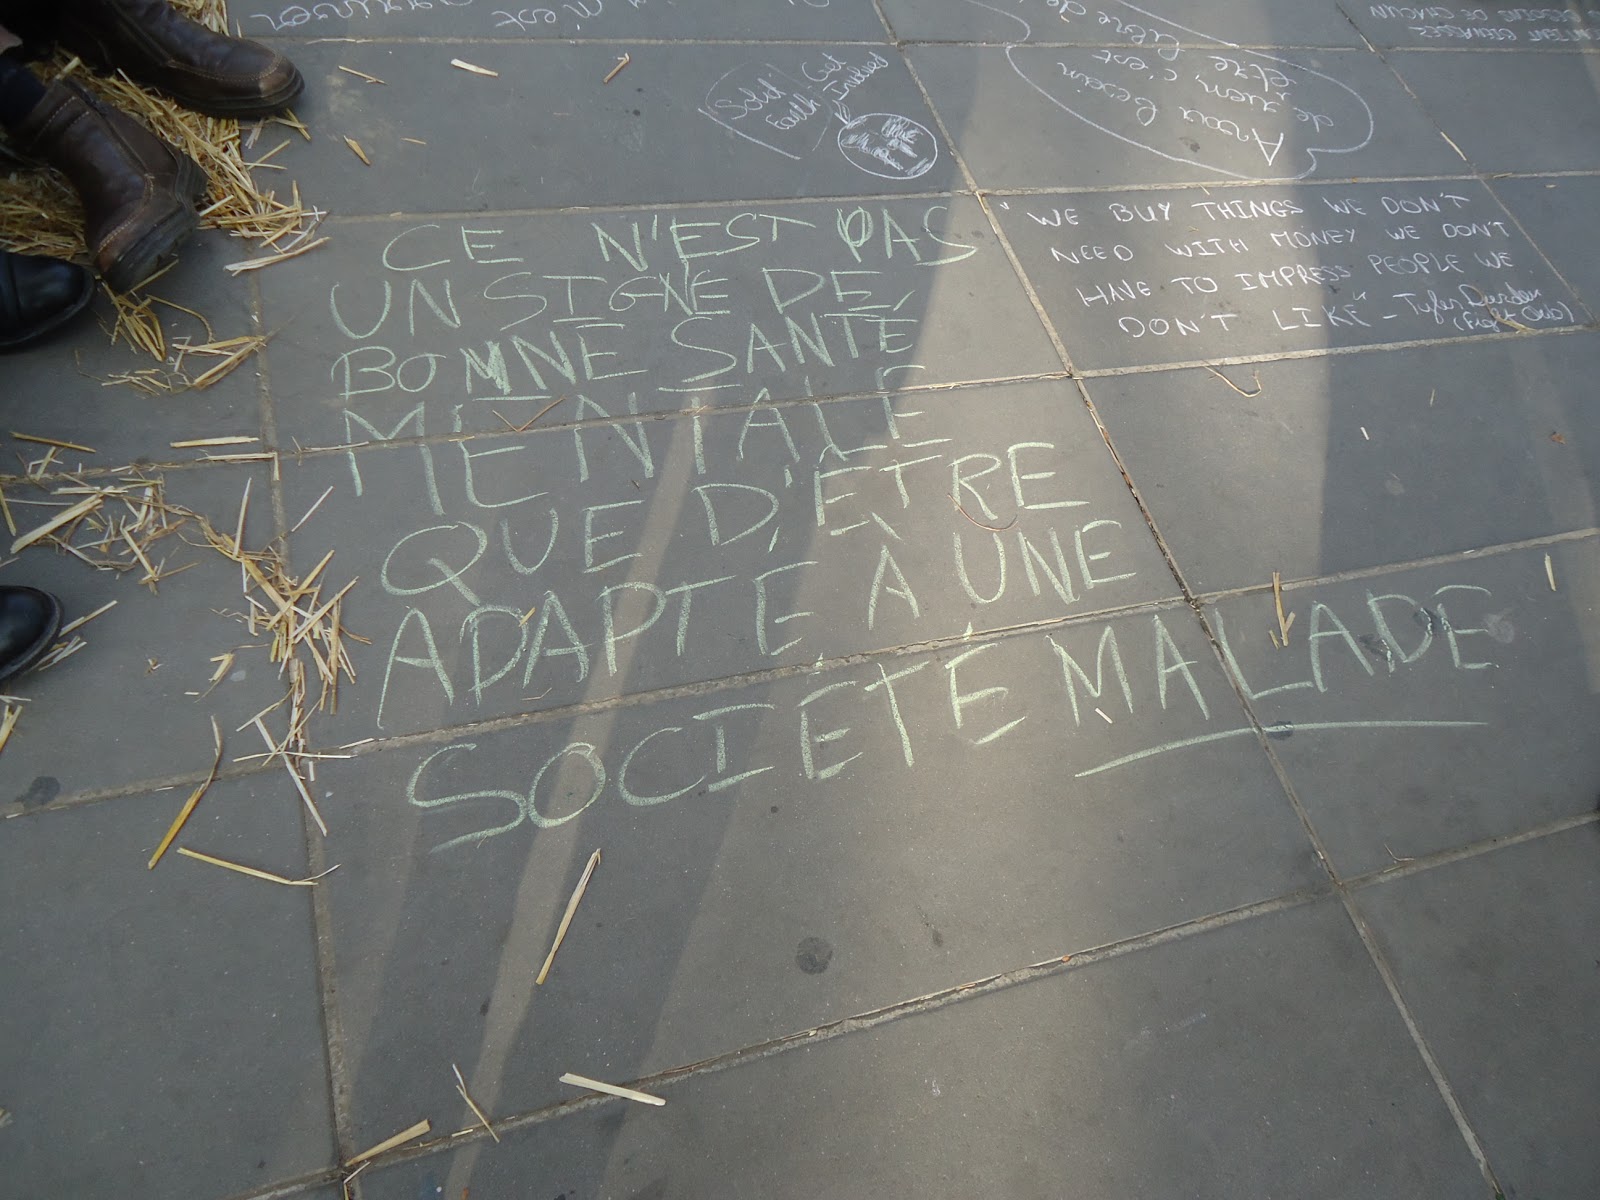 CE N'EST PAS
UN SIGNE DE
BONNE SANTÉ
MENTALE
QUE D'ÊTRE
ADAPTÉ À UNE
SOCIÉTÉ MALADE
"WE BUY THINGS WE DON'T
NEED WITH MONEY WE DON'T
HAVE TO IMPRESS PEOPLE WE
DON'T LIKE" - Tyler Durden
(Fight Club)
Solid
Earth
Get
Avoir besoin
de rien, c'est
être
libre de
n'est
BESOINS DE CHACUN